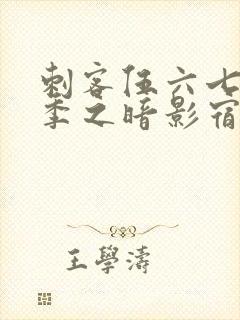 刺客伍六七
季之暗影宿
王學濤